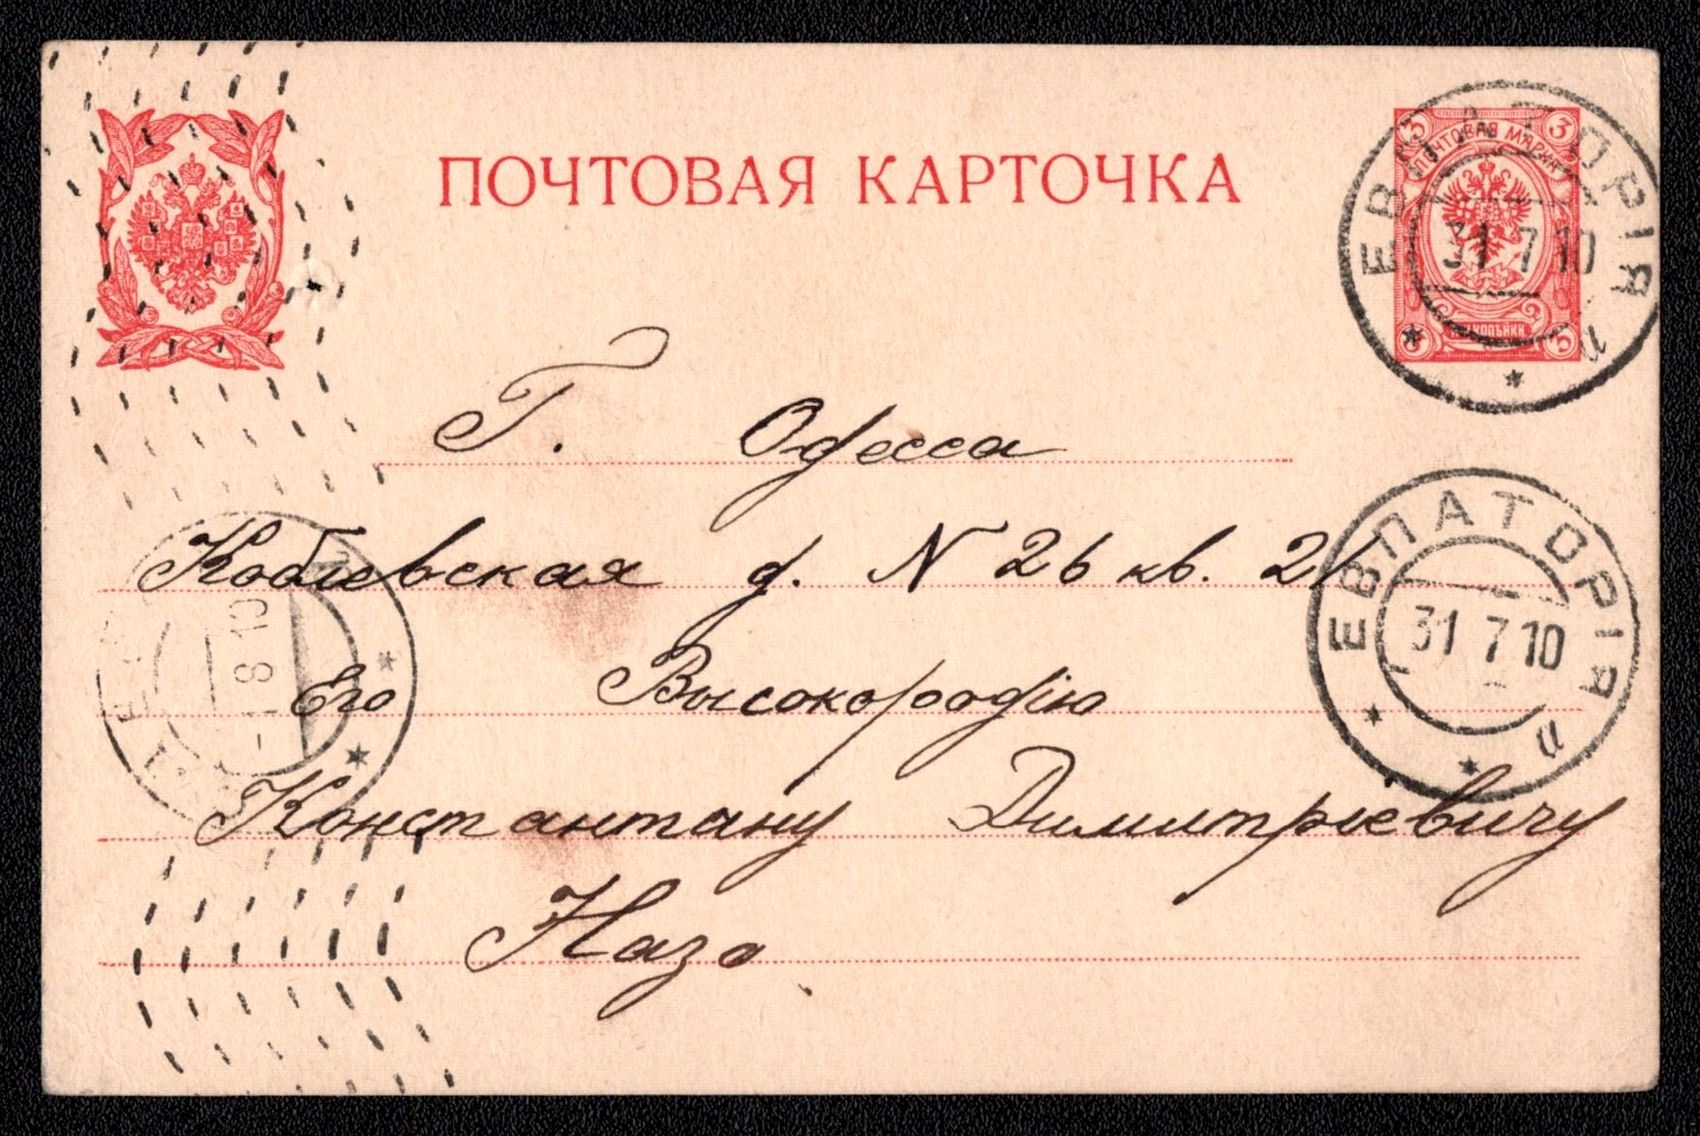 ПОЧТОВАЯ КАРТОЧКА
3 3
ПОЧТОВАЯ МАРКА
КОПѢЙКИ
3 3
ЕВПАТОРІЯ
31 7 10
п
Г. Одесса
Коблевская д. N 26 кв. 21
Его Высокородію
Константину Димитріевичу
Назо
ЕВПАТОРІЯ
31 7 10
п
8 10